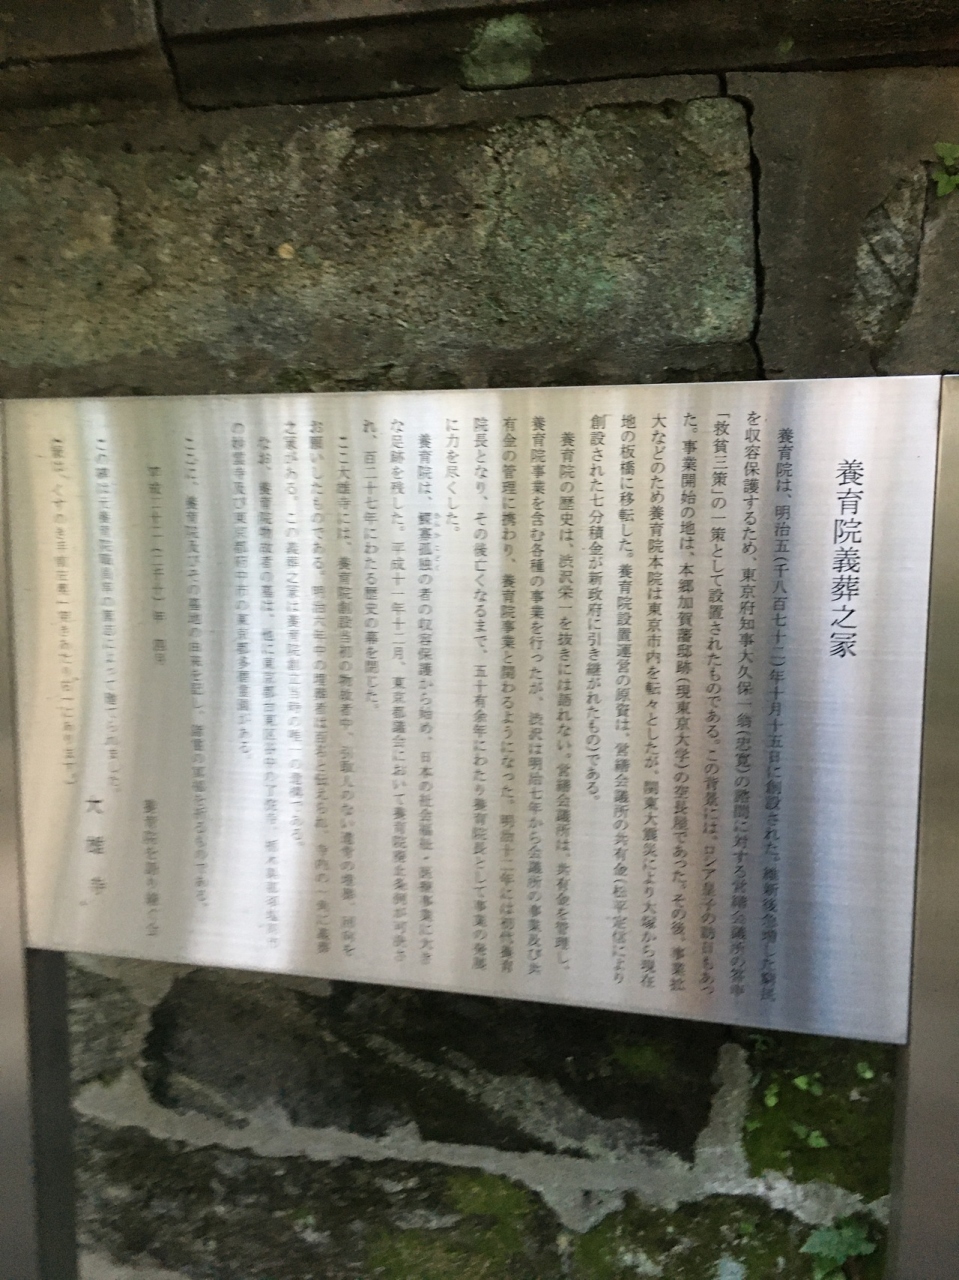 養育院義葬之冢
養育院は、明治五(千八百七十二)年十月十五日に創設された。維新後急増した窮民
を収容保護するため、東京府知事大久保一翁(忠寛)の諮問に対する営繕会議所の答申
「救貧三策」の一策として設置されたものである。この背景には、ロシア皇子の訪日もあっ
た。事業開始の地は、本郷加賀藩邸跡(現東京大学)の空長屋であった。その後、事業拡
大などのため養育院本院は東京市内を転々としたが、関東大震災により大塚から現在
地の板橋に移転した。養育院設置運営の原資は、営繕会議所の共有金(松平定信により
創設された七分積金が新政府に引き継がれたもの)である。
養育院の歴史は、渋沢栄一を抜きには語れない。営繕会議所は、共有金を管理し、
養育院事業を含む各種の事業を行ったが、渋沢は明治七年から会議所の事業及び共
有金の管理に携わり、養育院事業と関わるようになった。明治十二年には初代養育
院長となり、その後亡くなるまで、五十有余年にわたり養育院長として事業の発展
に力を尽くした。
養育院は、鰥寡孤独の者の収容保護から始め、日本の社会福祉・医療事業に大き
な足跡を残した。平成十一年十二月、東京都議会において養育院廃止条例が可決さ
れ、百二十七年にわたる歴史の幕を閉じた。
ここ大雄寺には、養育院創設当初の物故者中、引取人のない遺骨の埋葬、回向を
お願いしたものである。明治六年中の埋葬者は百名と伝えられ、寺内の一隅に義葬
之冢がある。この義葬之冢は養育院創立当時の唯一の遺構である。
なお、養育院物故者の墓は、他に東京都台東区谷中の了俒寺、栃木県那須塩原市
の妙雲寺及び東京都府中市の東京都多磨霊園がある。
ここに、養育院及びその墓地の由来を記し、諸霊の冥福を祈るものである。
養育院を語り継ぐ会
大雄寺